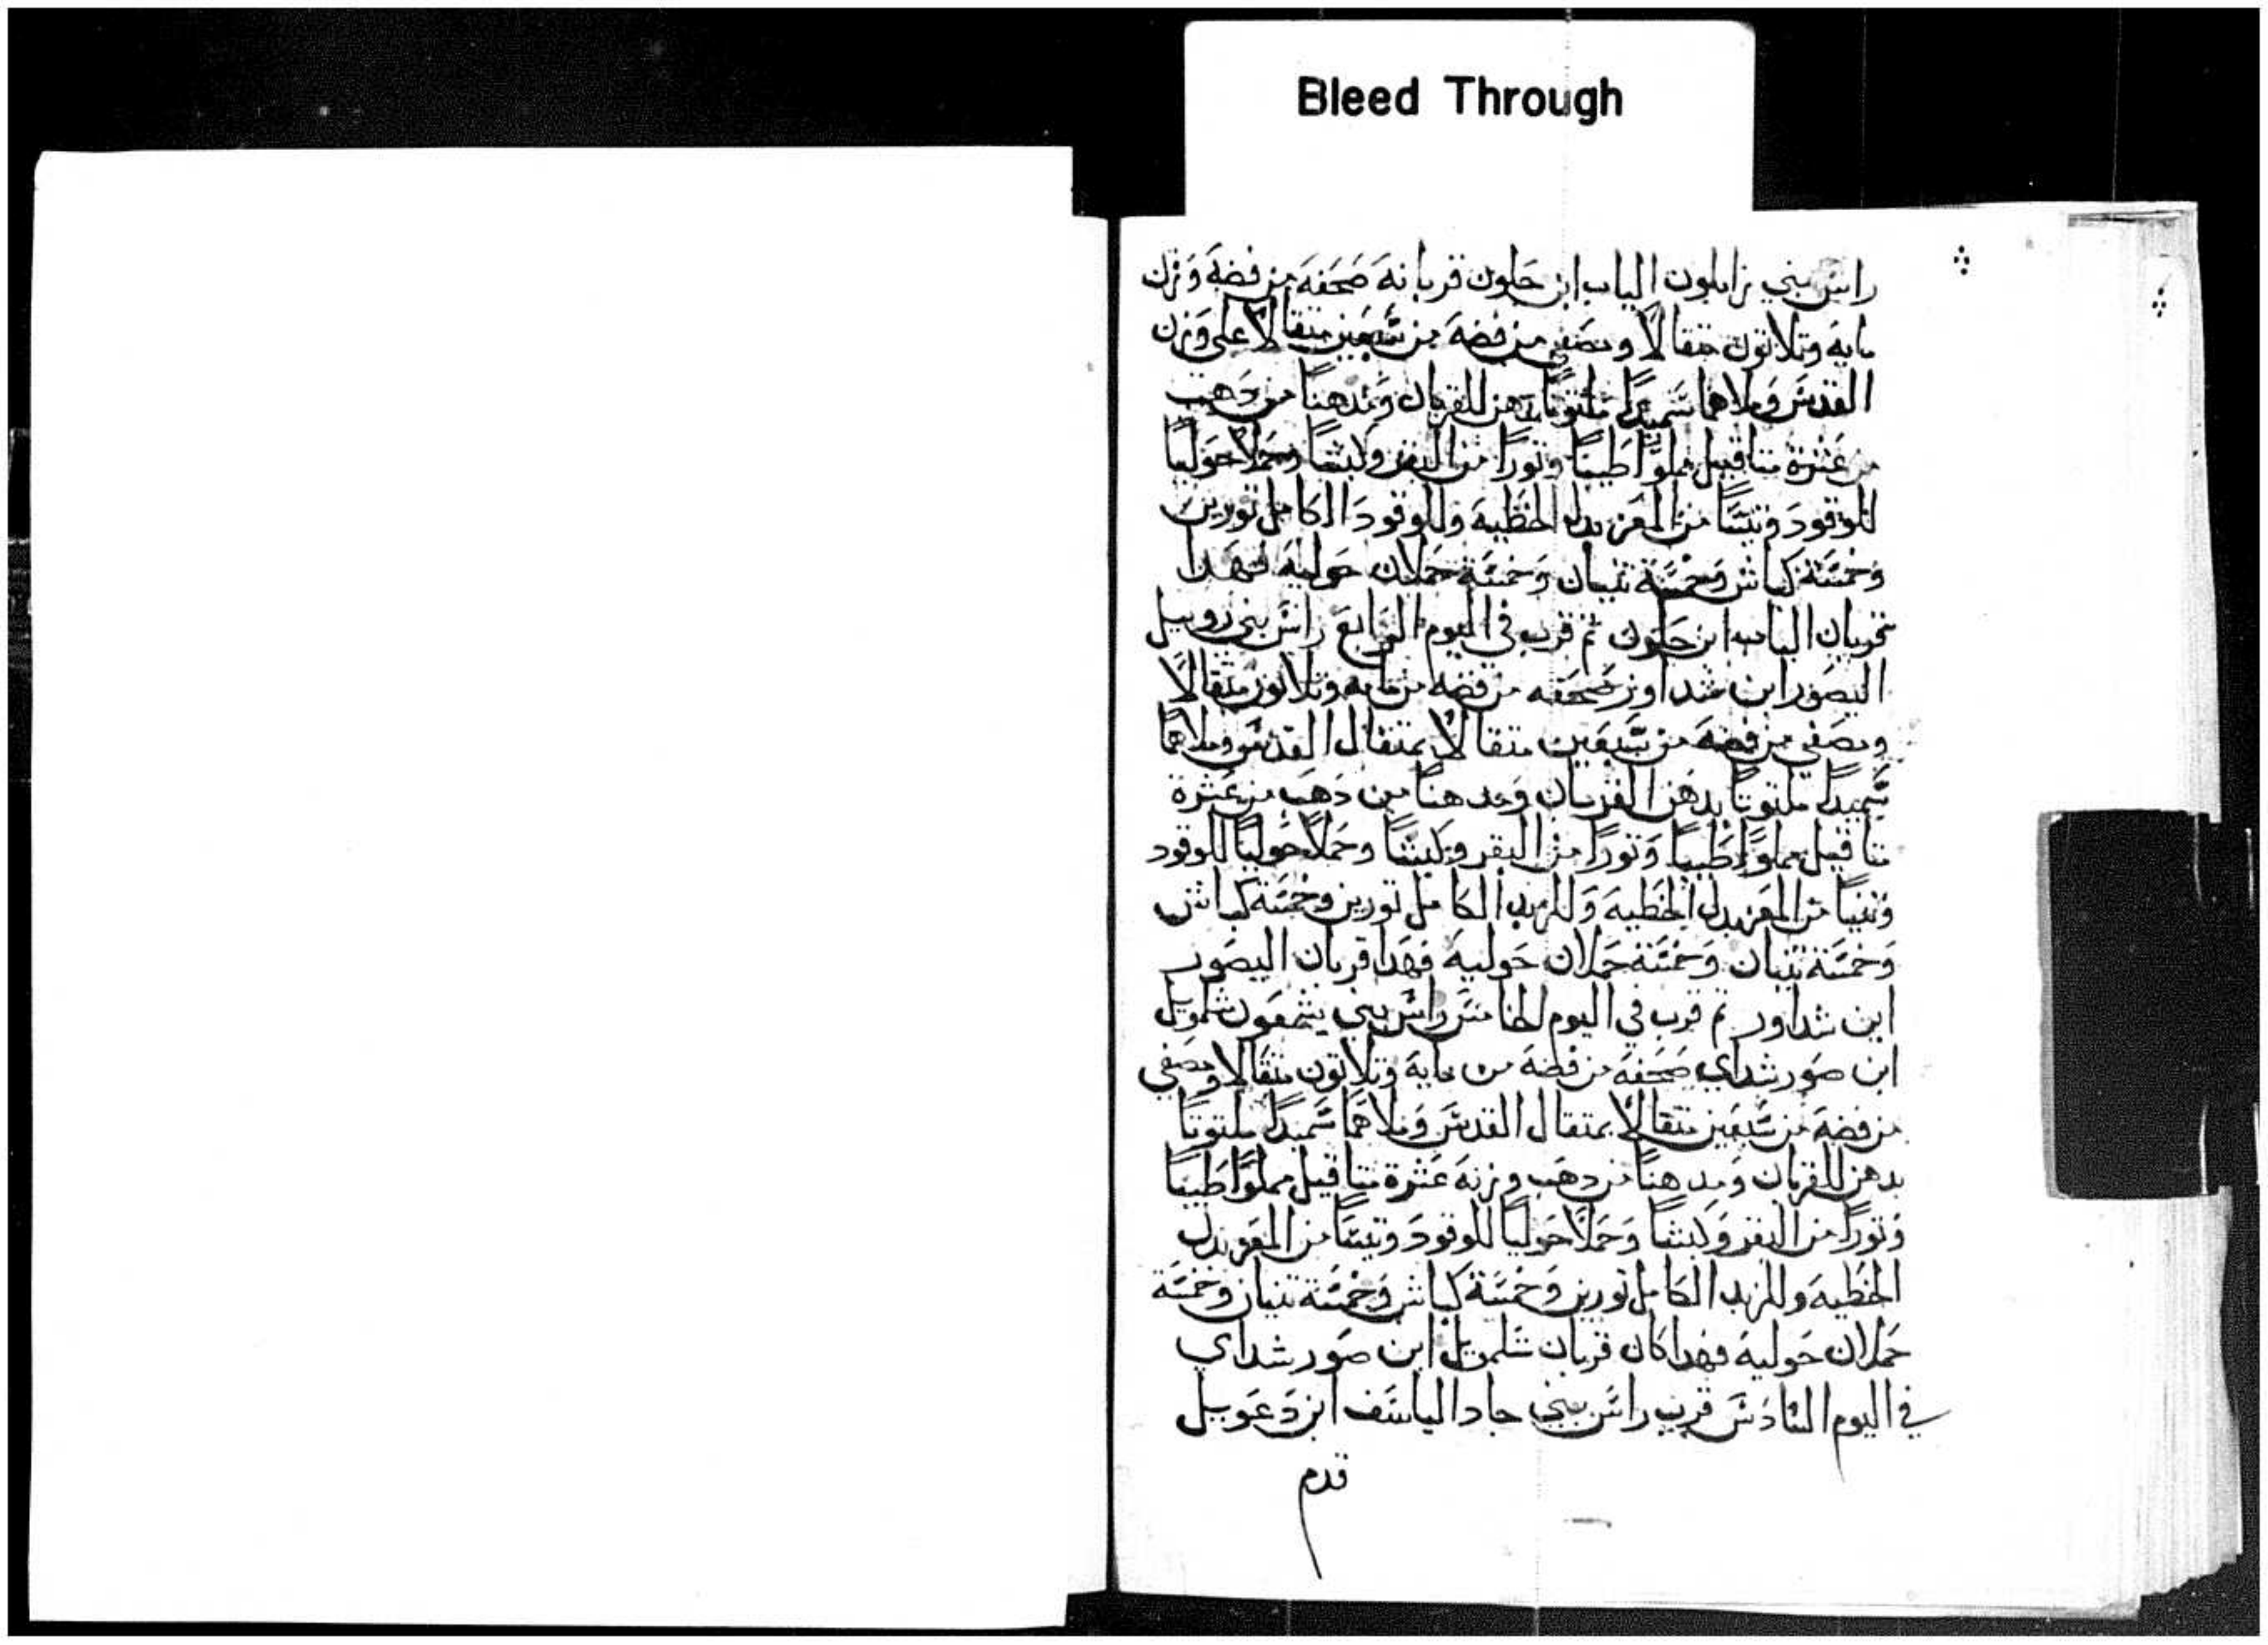 Bleed Through
راس بني زابلون الياب ابن حلون قربانه صحفه من فضة وزن
مايه وتلاتون متقالا ومصفي من فضه من سبعين متقالا على وزن
القدس وملاهما سميدا ملتوتا بدهن للقربان ومدهنا من دهب
من عشرة متاقيل مملوا طيبا وتورا من البقر وكبشا وحملا حوليا
للوقود وتيسا من المعز بدل الخطيه وللوقود الكامل تورين
وخمسة كباش وخمسة تنيان وخمسة حملان حوليه فهدا
قربان الياب ابن حلون تم قرب في اليوم الرابع راس بني روبيل
اليصور ابن شداور صحفه من فضه من مايه وتلاتون متقالا
ومصفي من فضه من سبعين متقالا بمتقال القدس وملاهما
سميدا ملتوتا بدهن القربان ومدهنا من دهب من عشرة
متاقيل مملوا طيبا وتورا من البقر وكبشا وحملا حوليا للوقود
وتيسا من المعز بدل الخطيه وللزبد الكامل تورين وخمسة كباش
وخمسة تنيان وخمسة حملان حوليه فهدا قربان اليصور
ابن شداور تم قرب في اليوم الخامس راس بني يشمعون شلمويل
ابن صور شداي صحفه من فضه من مايه وتلاتون متقالا ومصفي
من فضه من سبعين متقالا بمتقال القدس وملاهما سميدا ملتوتا
بدهن للقربان ومدهنا من دهب وزنه عشرة متاقيل مملوا طيبا
وتورا من البقر وكبشا وحملا حوليا للوقود وتيسا من المعز بدل
الخطيه وللزبد الكامل تورين وخمسة كباش وخمسة تنيان وخمسة
حملان حوليه فهدا كان قربان شلمويل ابن صور شداي
في اليوم السادس قرب راس بني جاد الياسف ابن دعويل
قدم